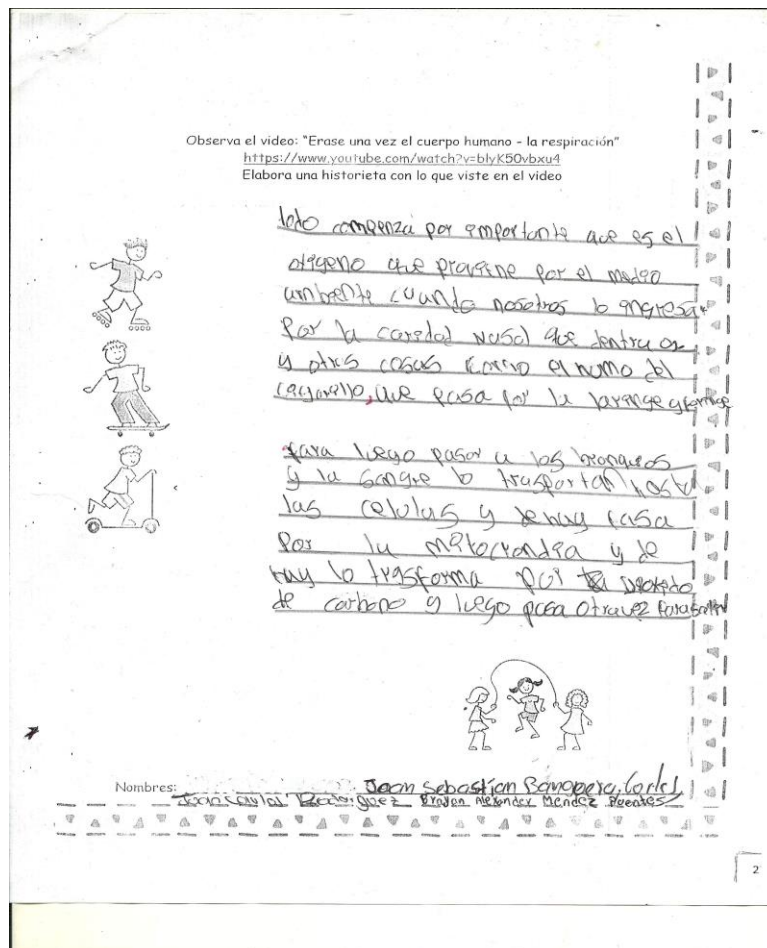 Observa el video: "Erase una vez el cuerpo humano - la respiración"
https://www.youtube.com/watch?v=blyK5Ovbxu4
Elabora una historieta con lo que viste en el video
todo comgenza por emportante que es el
oxigeno que proviene por el medio
ambiente cuando nosotros lo ingresa
Por la cavedad nasal que dentra
y otras cosas como el humo del
cigarrillo, que pasa por la laringe y
para luego pasar a los bronquios
y la sangre lo trasportan hasta
las celulas y de hay pasa
Por la mitocrondia y de
hay lo trasforma por
de carbono y luego pasa otra vez para
Nombres: Joan Sebastian
Joan Carlos Rodriguez Brayan Alexander Mendez Puentes
2